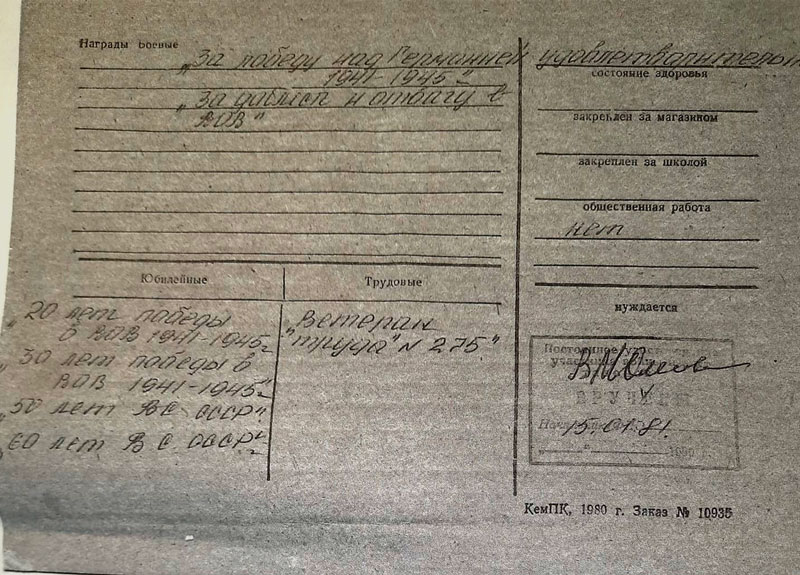 Награды Боевые
„За победу над Германией
1941-1945"
„За доблесть и отвагу в
ВОВ"
Юбилейные
„20 лет победы
в ВОВ 1941-1945г
„30 лет победы в
ВОВ 1941-1945"
„50 лет ВС СССР"
„60 лет ВС СССР"
Трудовые
„Ветеран
труда" N 275"
удовлетворительн
состояние здоровья
закреплен за магазином
закреплен за школой
общественная работа
нет
нуждается
Постоянное
ВРУЧЕН
15.01.81.
КемПК, 1980 г. Заказ № 10935